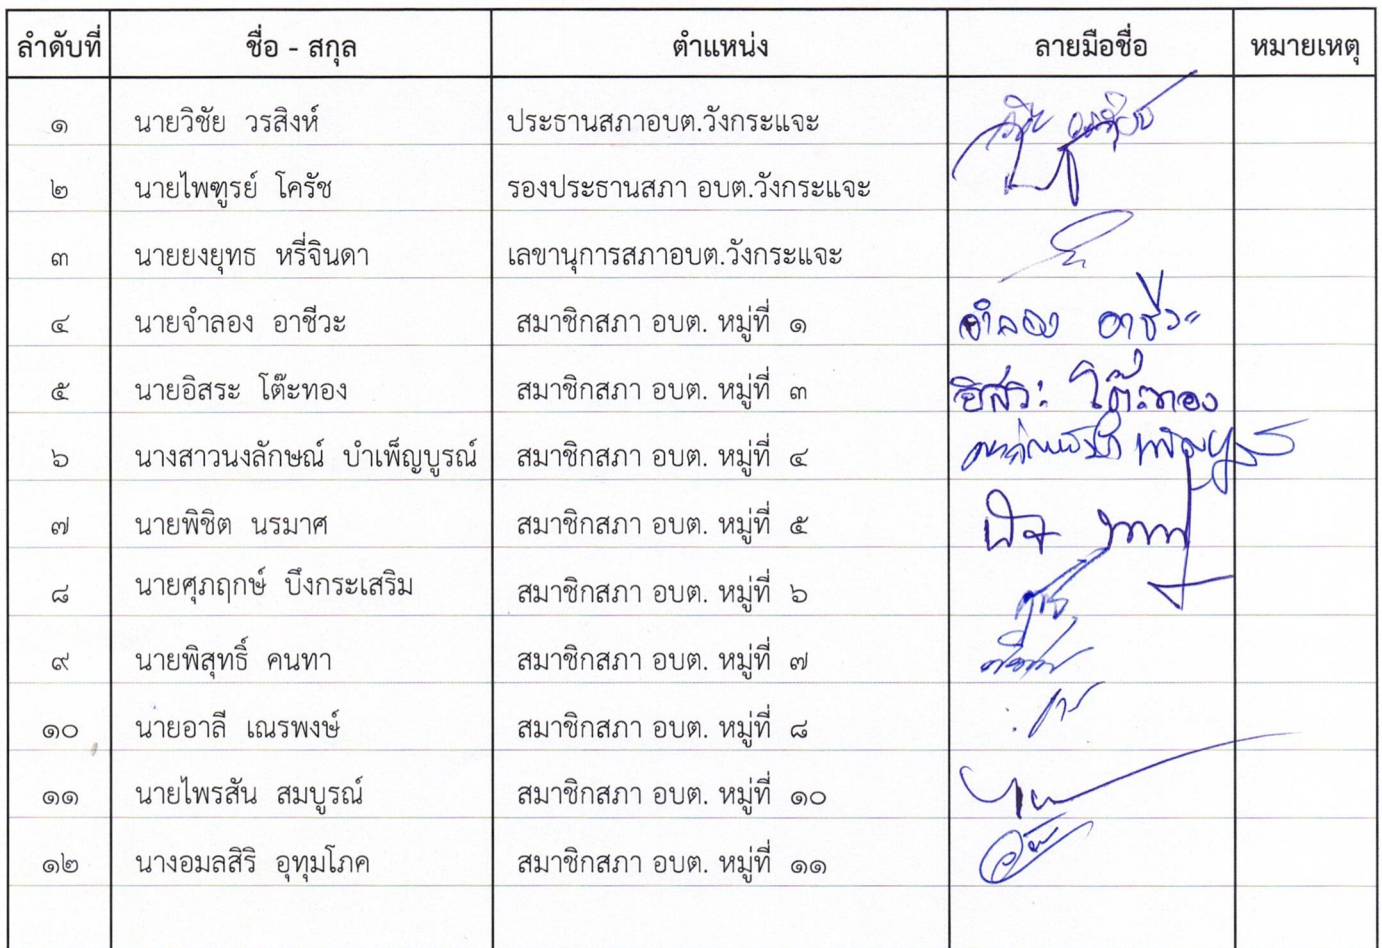 ลำดับที่ ชื่อ - สกุล ตำแหน่ง ลายมือชื่อ หมายเหตุ
๑ นายวิชัย วรสิงห์ ประธานสภาอบต.วังกระแจะ
๒ นายไพฑูรย์ โครัช รองประธานสภา อบต.วังกระแจะ
๓ นายยงยุทธ หรี่จินดา เลขานุการสภาอบต.วังกระแจะ
๔ นายจำลอง อาชีวะ สมาชิกสภา อบต. หมู่ที่ ๑ จำลอง อาชีวะ
๕ นายอิสระ โต๊ะทอง สมาชิกสภา อบต. หมู่ที่ ๓ อิสระ โต๊ะทอง
๖ นางสาวนงลักษณ์ บำเพ็ญบูรณ์ สมาชิกสภา อบต. หมู่ที่ ๔
๗ นายพิชิต นรมาศ สมาชิกสภา อบต. หมู่ที่ ๕
๘ นายศุภฤกษ์ บึงกระเสริม สมาชิกสภา อบต. หมู่ที่ ๖
๙ นายพิสุทธิ์ คนทา สมาชิกสภา อบต. หมู่ที่ ๗
๑๐ นายอาลี เณรพงษ์ สมาชิกสภา อบต. หมู่ที่ ๘
๑๑ นายไพรสัน สมบูรณ์ สมาชิกสภา อบต. หมู่ที่ ๑๐
๑๒ นางอมลสิริ อุทุมโภค สมาชิกสภา อบต. หมู่ที่ ๑๑